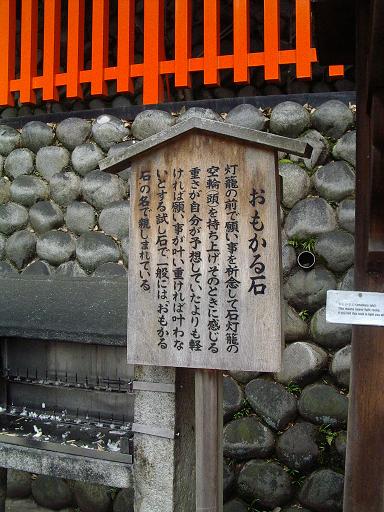 おもかる石
灯籠の前で願い事を祈念して石灯籠の
空輪頭を持ち上げ、そのときに感じる
重さが自分が予想していたよりも軽
ければ願い事が叶い、重ければ叶わな
いとする試し石で、一般には、おもかる
石の名で親しまれている。